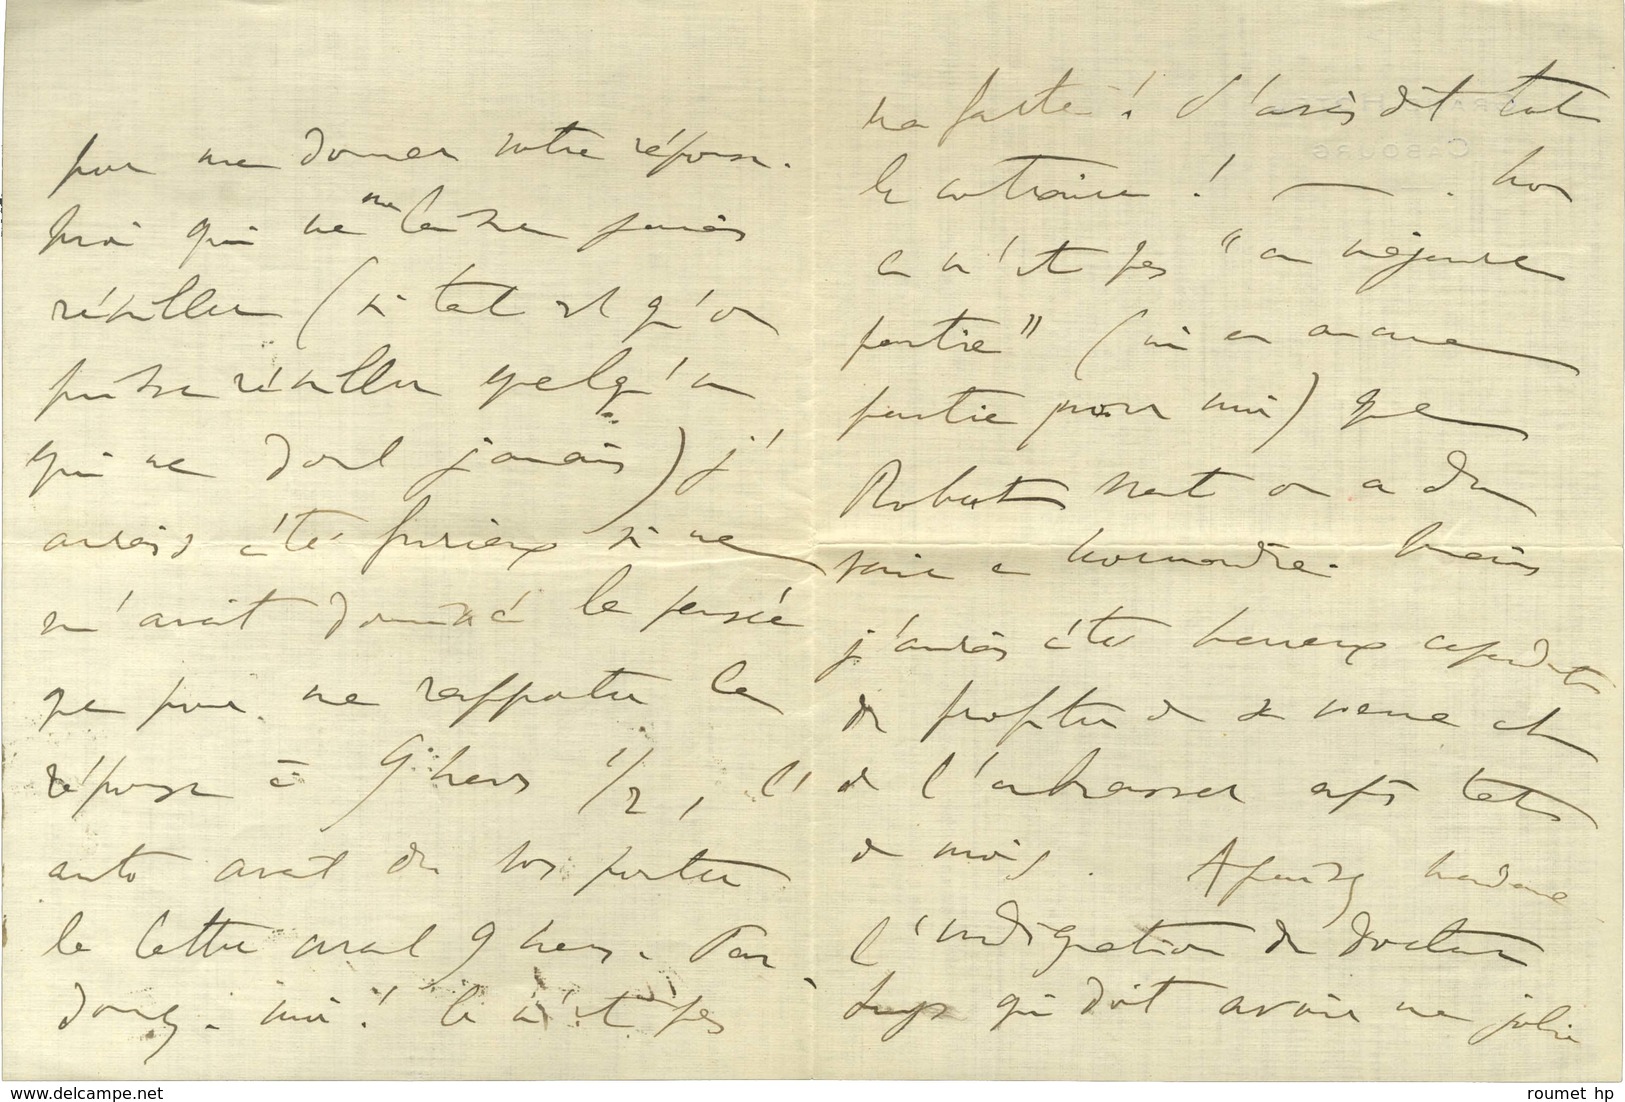 pour me donner votre réponse.
Moi qui ne me laisse jamais
réveiller (si tant est qu'on
puisse réveiller quelqu'un
qui ne dort jamais) j'
aurais été furieux si ne
m'avait donné la pensée
que pour me rapporter la
réponse à 9 heures 1/2, l'
auto avait dû vous porter
la lettre avant 9 heures. Par-
donnez-moi! Ce n'est pas
ma faute! J'avais dit tout
le contraire! . Non
ce n'est pas "en majeure
partie" (ni en aucune
partie pour moi) que
Robert est en
venir en Normandie. Mais
j'aurais été heureux cependant
de profiter de sa venue et
de l'embrasser après tant
de mois. Ajoutez Madame
l'indignation du docteur
qui doit avoir une jolie
GRAND
CABOURG
roumet hp
www.delcampe.net